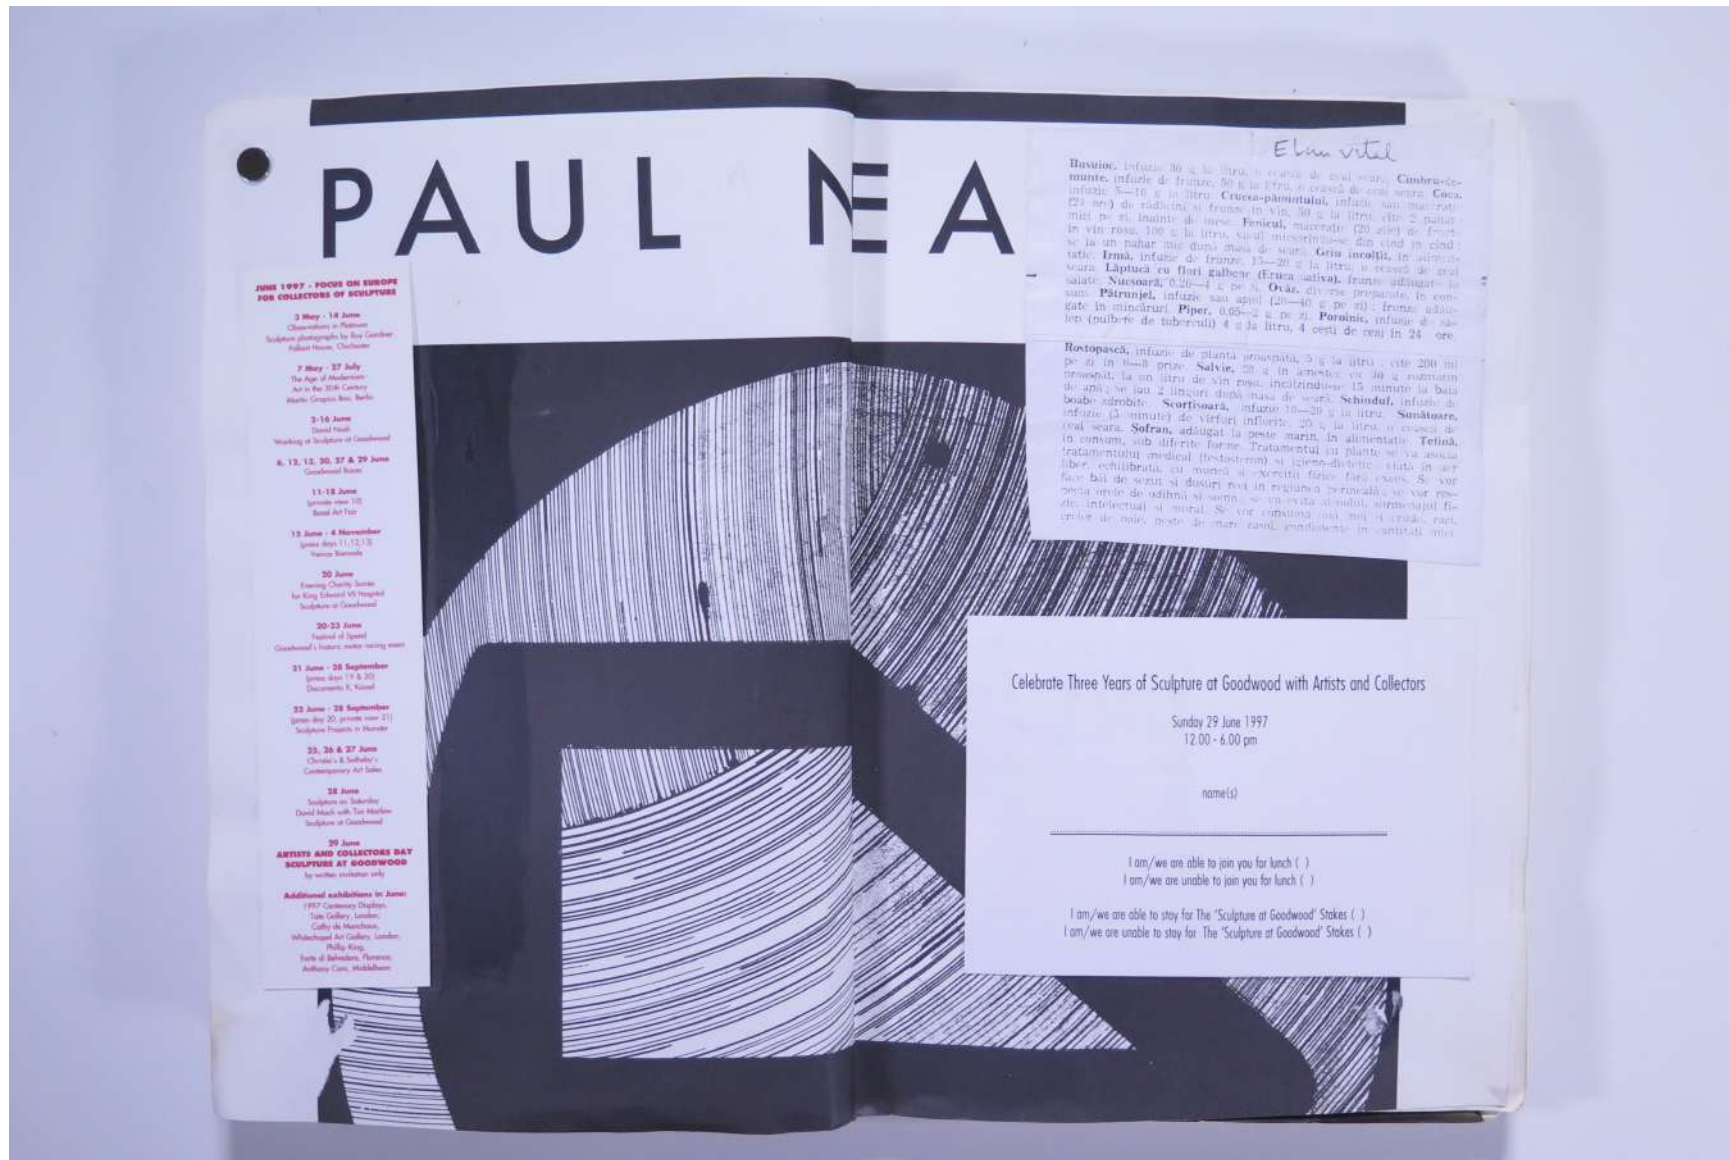 PAUL NEA
JUNE 1997 - FOCUS ON EUROPE
FOR COLLECTORS OF SCULPTURE
3 May - 14 June
Observations in Platinum
Sculpture photographs by Roy Gardner
Pallant House, Chichester
7 May - 27 July
The Age of Modernism-
Art in the 20th Century
Martin Gropius Bau, Berlin
2-16 June
David Nash
Working at Sculpture at Goodwood
6, 12, 13, 20, 27 & 29 June
Goodwood Races
11-18 June
(private view 10)
Basel Art Fair
15 June - 4 November
(press days 11,12,13)
Venice Biennale
20 June
Evening Charity Soirée
for King Edward VII Hospital
Sculpture at Goodwood
20-23 June
Festival of Speed
Goodwood's historic motor racing event
21 June - 28 September
(press days 19 & 20)
Documenta X, Kassel
22 June - 28 September
(press day 20, private view 21)
Sculpture Projects in Munster
25, 26 & 27 June
Christie's & Sotheby's
Contemporary Art Sales
28 June
Sculpture on Saturday
David Mach with Tim Marlow
Sculpture at Goodwood
29 June
ARTISTS AND COLLECTORS DAY
SCULPTURE AT GOODWOOD
by written invitation only
Additional exhibitions in June:
1997 Centenary Displays,
Tate Gallery, London,
Cathy de Monchaux,
Whitechapel Art Gallery, London,
Phillip King,
Forte di Belvedere, Florence,
Anthony Caro, Middelheim
Elan vital
Busuioc, infuzie 30 g la litru, o ceașcă de ceai seara. Cimbru-de-
munte, infuzie de frunze, 50 g la litru, o ceașcă de ceai seara. Coca,
infuzie 5—10 g la litru. Crucea-pămîntului, infuzie sau macerat
(24 ore) de rădăcini și frunze în vin, 50 g la litru, cîte 2 pahare
mici pe zi, înainte de mese. Fenicul, macerație (20 zile) de fructe
în vin roșu, 100 g la litru, vasul mișcîndu-se din cînd în cînd ;
se ia un pahar mic după masa de seară. Grîu încolțit, în alimen-
tație. Irmă, infuzie de frunze, 15—20 g la litru, o ceașcă de ceai
seara. Lăptucă cu flori galbene (Eruca sativa), frunze adăugate la
salate. Nucșoară, 0,20—4 g pe zi. Ovăz, diverse preparate, în con-
sum. Pătrunjel, infuzie sau apiol (20—40 g pe zi) ; frunze adău-
gate în mîncăruri. Piper, 0,05—2 g pe zi. Poroinic, infuzie de sa-
lep (pulbere de tuberculi) 4 g la litru, 4 cești de ceai în 24 ore.
Rostopască, infuzie de plantă proaspătă, 5 g la litru ; cîte 200 ml
pe zi în 6—8 prize. Salvie, 20 g în amestec cu 30 g rozmarin
proaspăt, la un litru de vin roșu, încălzindu-se 15 minute la baia
de apă ; se iau 2 linguri după masa de seară. Schinduf, infuzie de
boabe zdrobite. Scorțișoară, infuzie 10—20 g la litru. Sunătoare,
infuzie (5 minute) de vîrfuri înflorite, 20 g la litru, o ceașcă de
ceai seara. Șofran, adăugat la pește marin, în alimentație. Țelină,
în consum, sub diferite forme. Tratamentul cu plante se va asocia
tratamentului medical (testosteron) și igieno-dietetic ; viață în aer
liber, echilibrată, cu muncă și exerciții fizice fără exces. Se vor
face băi de șezut și dușuri reci în regiunea perineală ; se vor res-
pecta orele de odihnă și somn ; se va evita alcoolul, surmenajul fi-
zic, intelectual și moral. Se vor consuma ouă moi și crude, raci,
creier de oaie, pește de mare rasol, condimente în cantități mici
Celebrate Three Years of Sculpture at Goodwood with Artists and Collectors
Sunday 29 June 1997
12.00 - 6.00 pm
name(s)
I am/we are able to join you for lunch ( )
I am/we are unable to join you for lunch ( )
I am/we are able to stay for The 'Sculpture at Goodwood' Stakes ( )
I am/we are unable to stay for The 'Sculpture at Goodwood' Stakes ( )